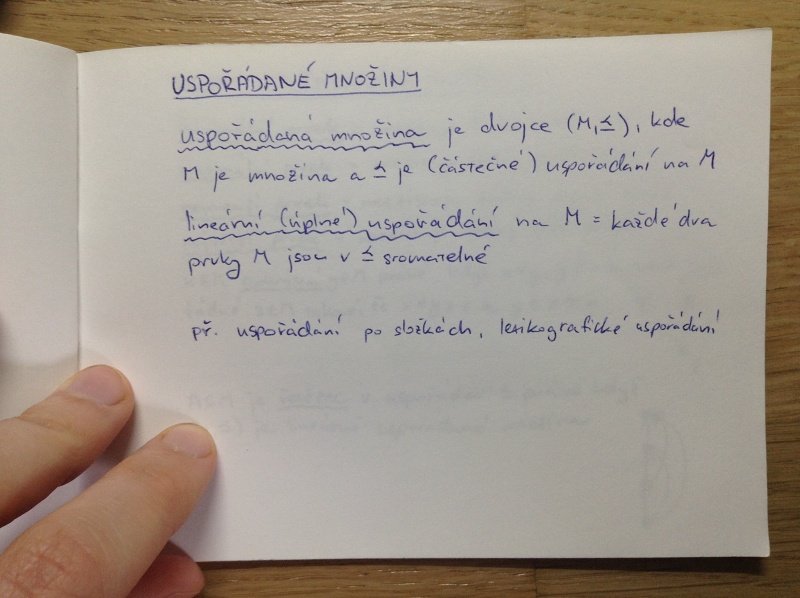 USPOŘÁDANÉ MNOŽINY
uspořádaná množina je dvojce (M,≤), kde
M je množina a ≤ je (částečné) uspořádání na M
lineární (úplné) uspořádání na M = každé dva
prvky M jsou v ≤ srovnatelné
př. uspořádání po složkách, lexikografické uspořádání